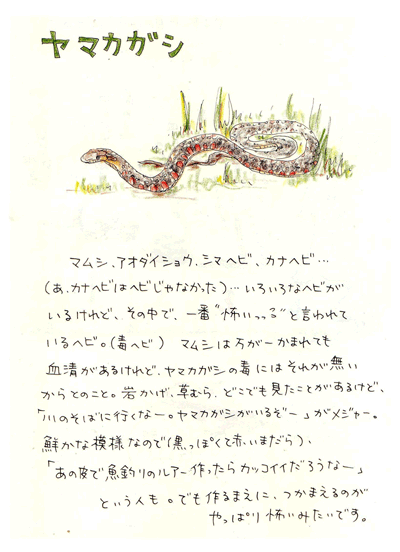 ヤマカガシ
マムシ、アオダイショウ、シマヘビ、カナヘビ…
(あ、カナヘビはヘビじゃなかった)…いろいろなヘビが
いるけれど、その中で、一番"怖いっっる"と言われて
いるヘビ。(毒ヘビ) マムシは万が一かまれても
血清があるけれど、ヤマカガシの毒にはそれが無い
からとのこと。岩かげ、草むら、どこでも見たことがあるけど、
「川のそばに行くなー。ヤマカガシがいるぞー」がメジャー。
鮮かな模様なので(黒っぽくて赤いまだら)、
「あの皮で魚釣りのルアー作ったらカッコイイだろうなー」
という人も。でも作るまえに、つかまえるのが
やっぱり怖いみたいです。